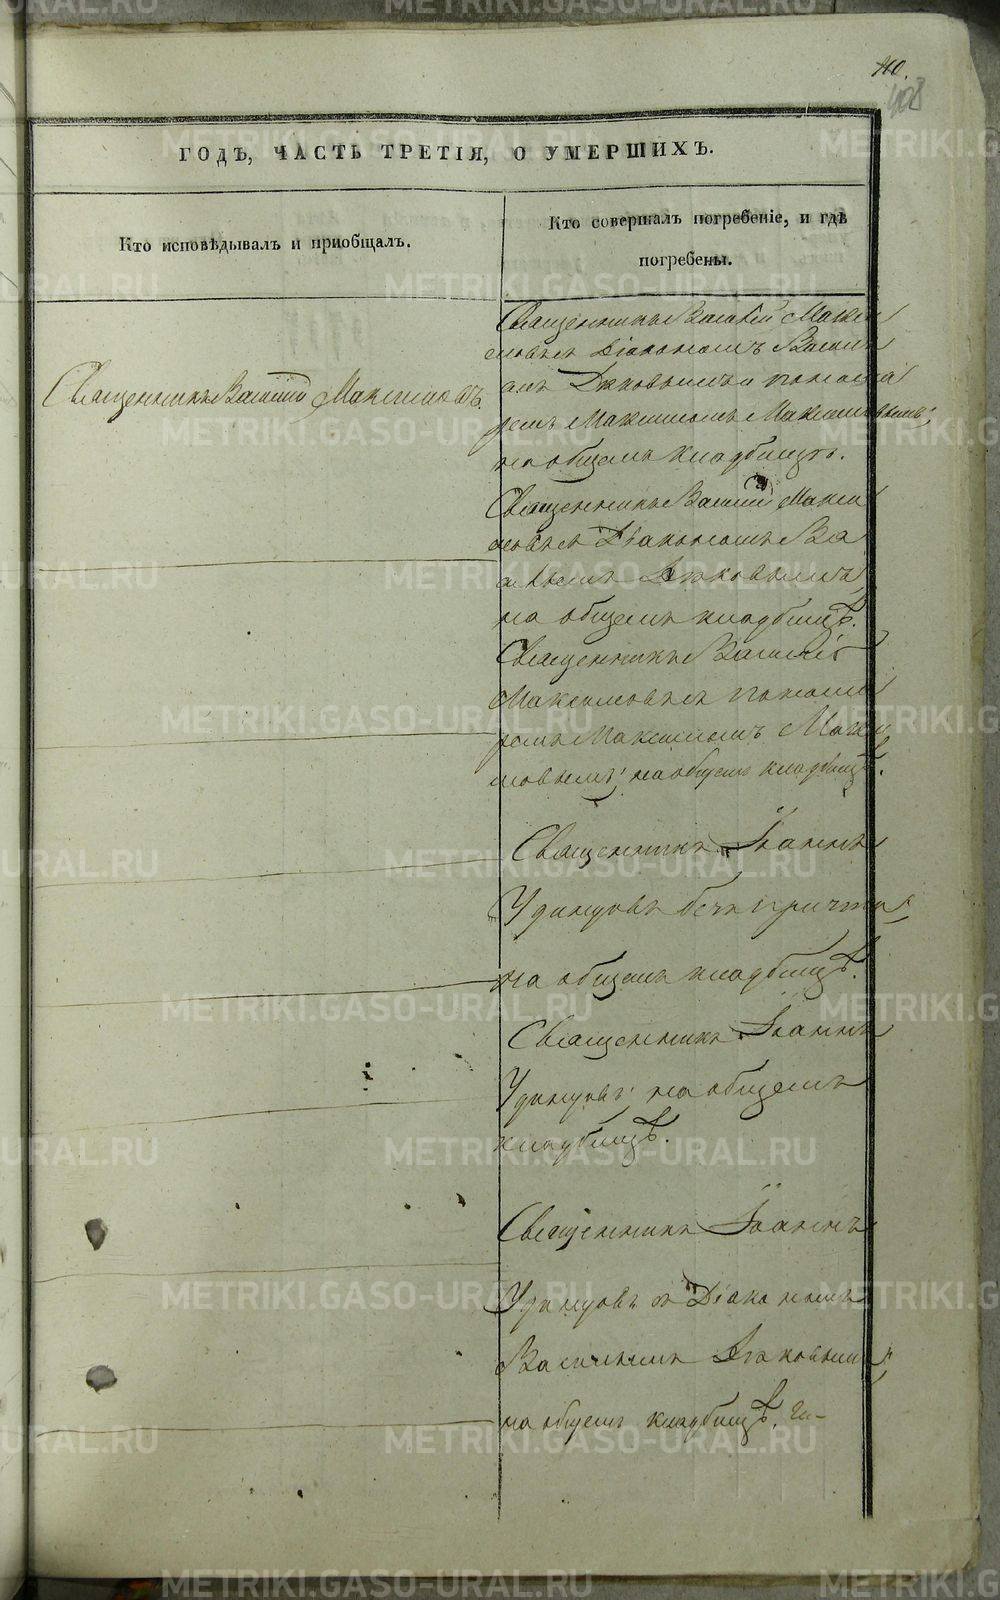 110.
408
ГОДЪ, ЧАСТЬ ТРЕТІЯ, О УМЕРШИХЪ.
Кто исповѣдывалъ и приобщалъ.
Кто совершалъ погребеніе, и гдѣ
погребены.
Священникъ Василій Максимовъ.
Священникъ Василій Макси
мовъ съ Діакономъ Васильe
емъ и понома
ремъ Максимомъ Максимовымъ;
на общемъ кладбищѣ.
Священникъ Василій Макси
мовъ съ Діакономъ Ва
сильемъ
на общемъ кладбищѣ.
Священникъ Василій
Максимовъ съ понома
ремъ Максимомъ Макси
мовымъ; на общемъ кладбищѣ.
Священникъ Іоаннъ
Удинцовъ безъ причта;
на общемъ кладбищѣ.
Священникъ Іоаннъ
Удинцовъ; на общемъ
кладбищѣ.
Священникъ Іоаннъ
Удинцовъ съ Діакономъ
Васильемъ
на общемъ кладбищѣ.
METRIKI.GASO-URAL.RU